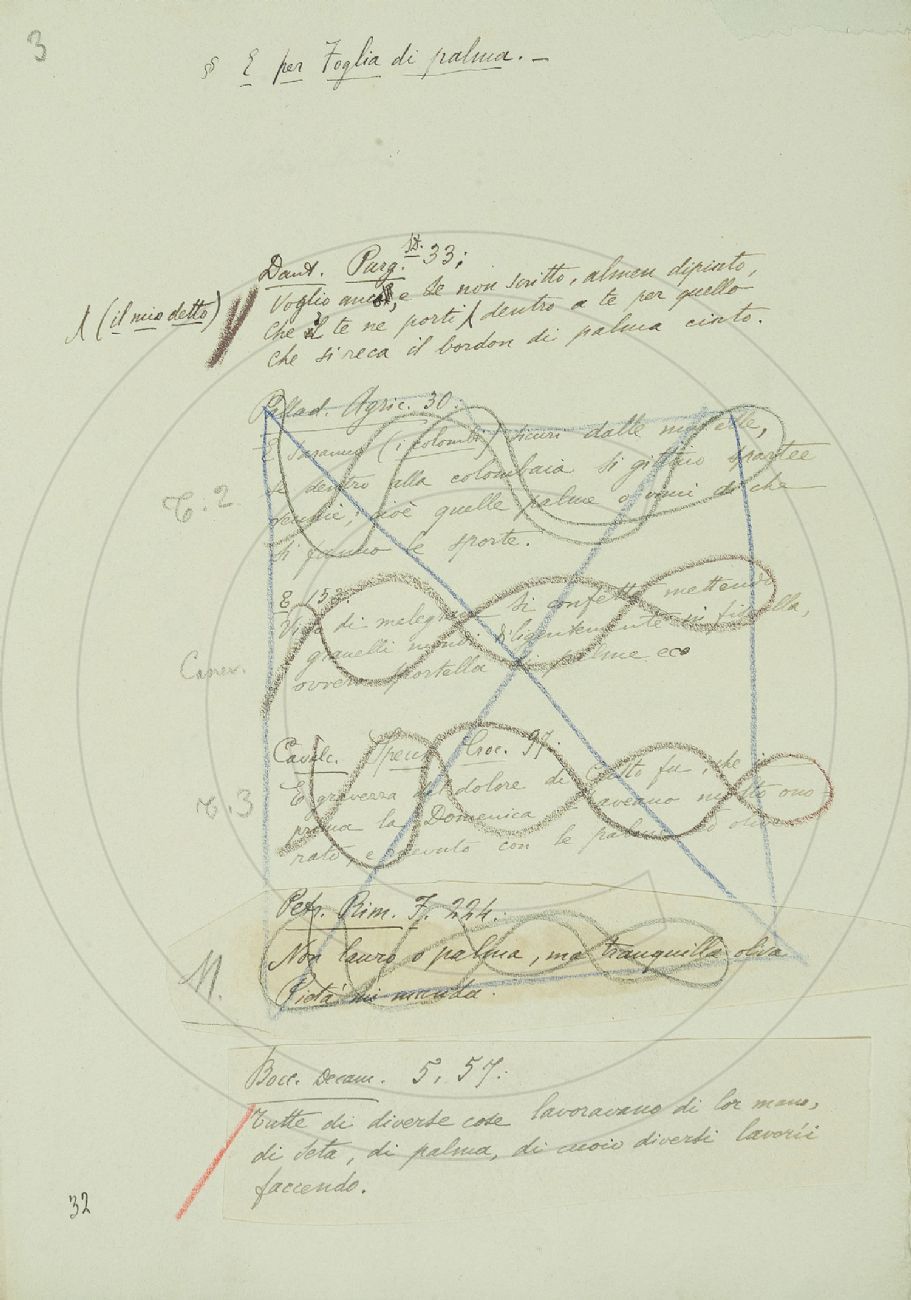 3
§ E per Foglia di palma. —
Dant. Purg. 33;
Voglio anco, e se non scritto, almen dipinto,
Λ (il mio detto)
Che il te ne porti Λ dentro a te per quello
Che si reca il bordon di palma cinto.
Pallad. Agric. 30:
E saranno (i colombi) sicuri dalle mustelle,
se dentro alla colombaia si gittino spartee
vecchie, cioè quelle palme o vinci di che
T. 2
si fanno le sporte.
E 153:
Vino di melegrane si confetta mettendo
granelli mondi diligentemente in fiscella,
Canev.
ovvero sportella di palme ec.
Cavalc. Specc. Croc. 97:
E gravezza del dolore di Cristo fu, che
T. 3
prima la Domenica l'aveano molto ono-
rato, e ricevuto con le palme ed olive
Petr. Rim. F. 224:
Non lauro o palma, ma tranquilla oliva
M.
Pietà mi manda.
Bocc. Decam. 5, 57:
Tutte di diverse cose lavoravano di lor mano,
di seta, di palma, di cuoio diversi lavorii
faccendo.
32